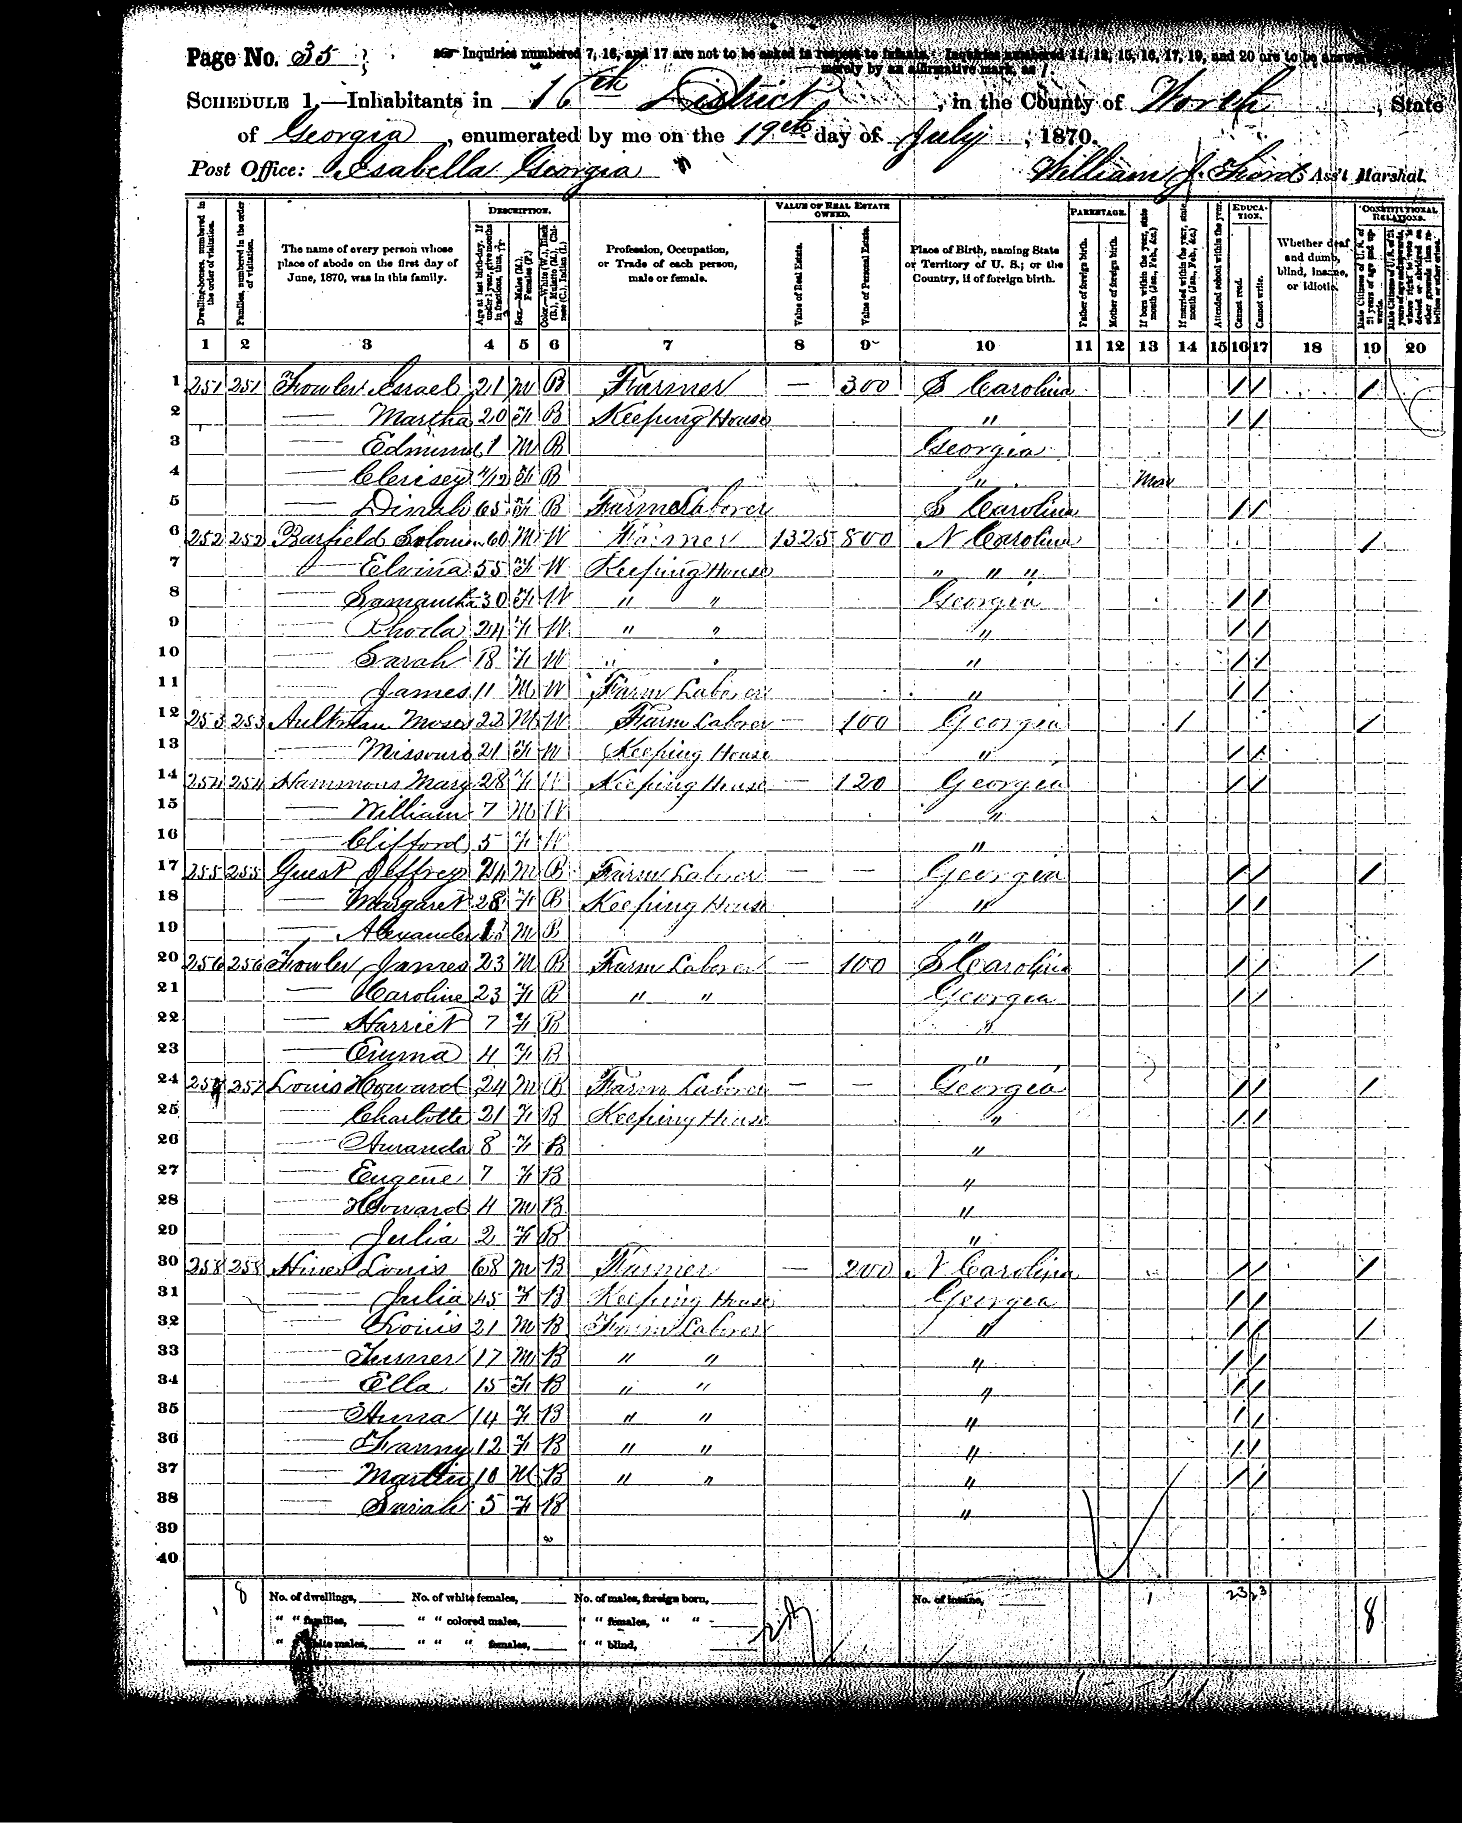 Page No. 35
Inquiries numbered 7, 16, and 17 are not to be asked in respect to infants. Inquiries numbered 11, 12, 15, 16, 17, 19, and 20 are to be answered
merely by an affirmative mark, as /
SCHEDULE 1.—Inhabitants in 16th District, in the County of Worth, State
of Georgia, enumerated by me on the 19th day of July, 1870.
Post Office: Isabella Georgia William J. Ford Ass't Marshal.
DESCRIPTION. VALUE OF REAL ESTATE OWNED. PARENTAGE. EDUCATION. CONSTITUTIONAL RELATIONS.
Dwelling-houses, numbered in the order of visitation.
Families, numbered in the order of visitation.
The name of every person whose place of abode on the first day of June, 1870, was in this family.
Age at last birth-day. If under 1 year, give months in fractions, thus,
Sex.—Males (M.), Females (F.)
Color.—White (W.), Black (B.), Mulatto (M.), Chinese (C.), Indian (I.)
Profession, Occupation, or Trade of each person, male or female.
Value of Real Estate.
Value of Personal Estate.
Place of Birth, naming State or Territory of U. S.; or the Country, if of foreign birth.
Father of foreign birth.
Mother of foreign birth.
If born within the year, state month (Jan., Feb., &c.)
If married within the year, state month (Jan., Feb., &c.)
Attended school within the year.
Cannot read.
Cannot write.
Whether deaf and dumb, blind, insane, or idiotic.
Male Citizens of U. S. of 21 years of age and upwards.
1 2 3 4 5 6 7 8 9 10 11 12 13 14 15 16 17 18 19 20
1 251 251 Fowler Israel 21 M B Farmer — 300 S Carolina / / /
2 — Martha 20 F B Keeping House " / /
3 — Edmund 1 M B Georgia
4 — Clerisey 4/12 F B "
5 — Dinah 65 F B Farm Laborer S Carolina / /
6 252 252 Barfield Solomon 60 M W Farmer 1325 800 N Carolina /
7 — Elvina 55 F W Keeping House " " "
8 — Samantha 30 F W " " Georgia / /
9 — Rhoda 24 F W " " " / /
10 — Sarah 18 F W " " " / /
11 — James 11 M W Farm Laborer " / /
12 253 253 Aultman Moses 22 M W Farm Laborer — 100 Georgia / /
13 — Missouri 21 F W Keeping House " / /
14 254 254 Hammons Mary 28 F W Keeping House — 120 Georgia / /
15 — William 7 M W "
16 — Clifford 5 F W "
17 255 255 Guest Jeffrey 24 M B Farm Laborer — — Georgia / / /
18 — Margaret 28 F B Keeping House " / /
19 — Alexander M B "
20 256 256 Fowler James 23 M B Farm Laborer — 100 S Carolina / / /
21 — Caroline 23 F B " " Georgia / /
22 — Harriet 7 F B "
23 — Emma 4 F B "
24 257 257 Louis Howard 24 M B Farm Laborer — — Georgia / / /
25 — Charlotte 21 F B Keeping House " / /
26 — Amanda 8 F B "
27 — Eugene 7 F B "
28 — Howard 4 M B "
29 — Julia 2 F B "
30 258 258 Hines Louis 68 M B Farmer — 200 N Carolina / / /
31 — Julia 45 F B Keeping House Georgia / /
32 — Louis 21 M B Farm Laborer " / / /
33 — Turner 17 M B " " " / /
34 — Ella 15 F B " " " / /
35 — Anna 14 F B " " " / /
36 — Fanny 12 F B " " " / /
37 — Martin 10 M B " " " / /
38 — Sarah 5 F B "
39
40
8 No. of dwellings, No. of white females, No. of males, foreign born, No. of insane, 1 23 23 8
" " families, " " colored males, " " females, " "
" " white males, " " " females, " " blind,